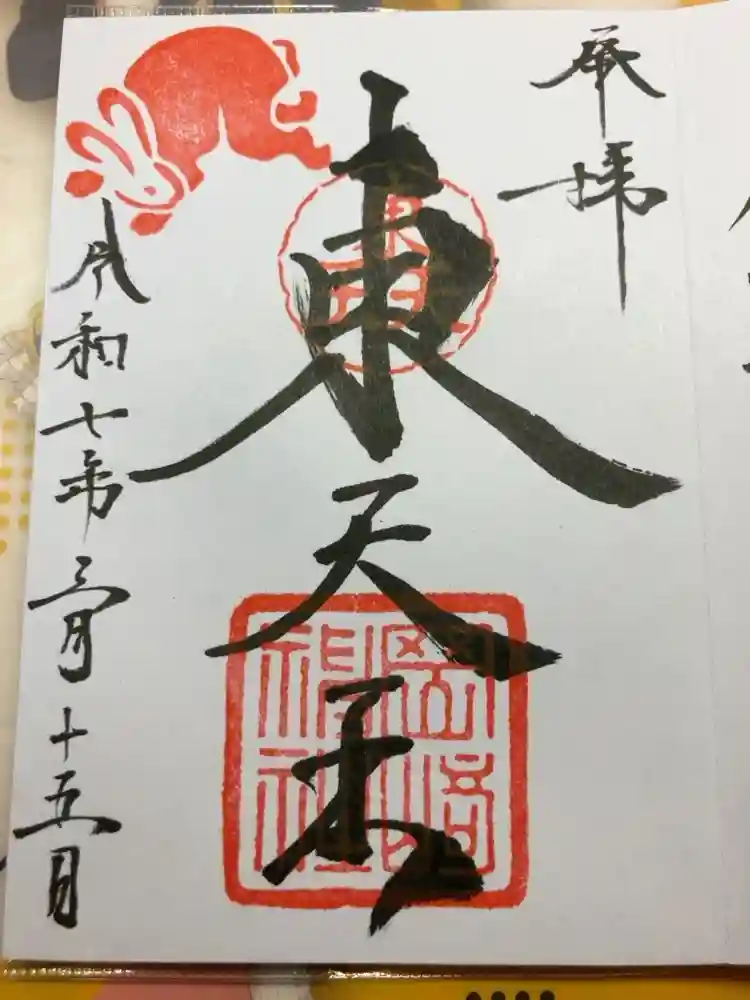 奉拝
東天王
岡崎
神社
令和七年三月十五日